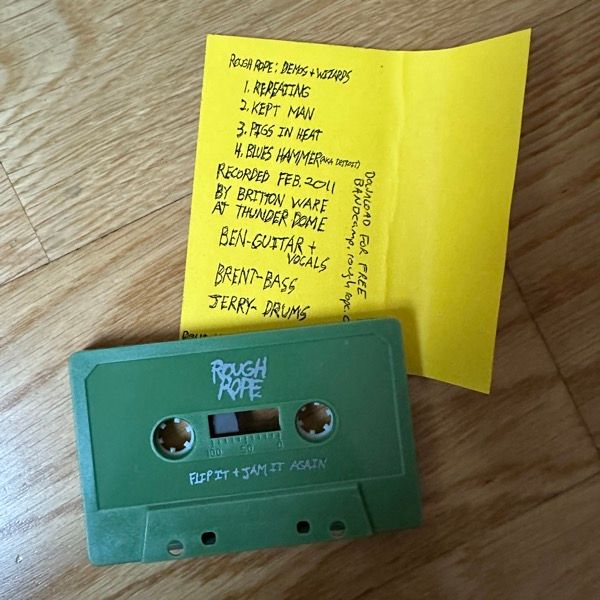 ROUGH ROPE: DEMOS + WIZARDS
1. REPEATING
2. KEPT MAN
3. PIGS IN HEAT
4. BLUES HAMMER (AKA DETROIT)
RECORDED FEB. 2011
BY BRITTON WARE
AT THUNDER DOME
BEN-GUITAR +
VOCALS
BRENT-BASS
JERRY- DRUMS
DOWNLOAD FOR FREE
BANDCAMP. rough rope. c
ROUGH
ROPE
100 50 0
FLIP IT + JAM IT AGAIN